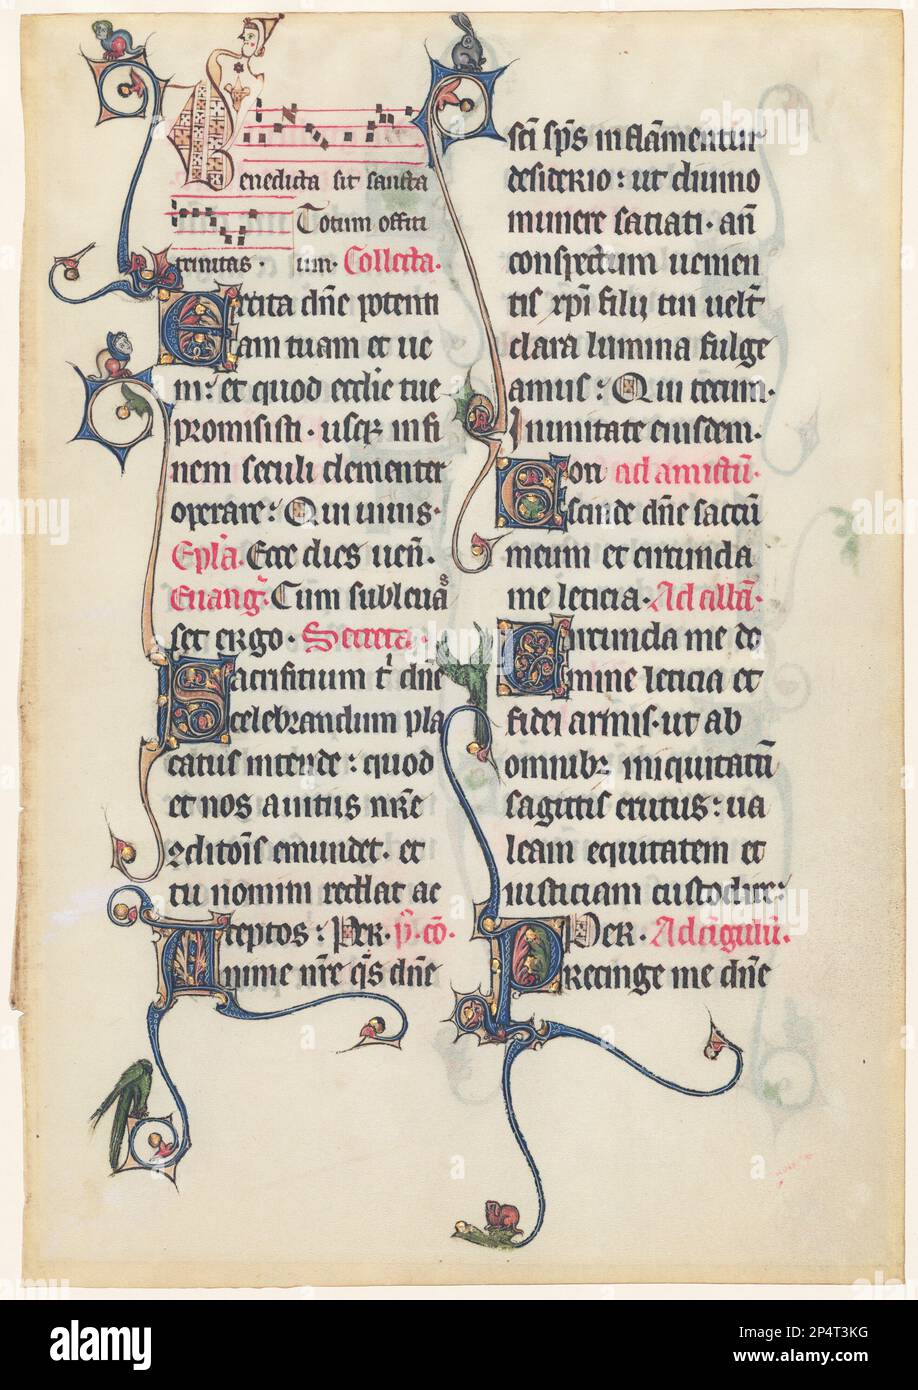 Benedicta sit sancta
Totum offiti
trinitas. um. Collecta.
Excita dn̄e potenti
am tuam et ue
ni: et quod ecclīe tue
promisisti. usqꝫ in fi
nem seculi clementer
operare: Qui uiuis.
Ep̄la. Ecce dies uen̄.
Euanḡ. Cum subleuas
set ergo. Secreta.
Sacrifitium t̄ dn̄e
celebrandum pla
catus intende: quod
et nos a uitiis nr̄e
ꝯditōis emundet. et
tu nomini reddat ac
ceptos: Per. p̄. cō.
Anime nr̄e q̄s dn̄e
sc̄i sp̄s inflam̄entur
desiderio: ut diuino
munere satiati. an̄
conspectum uenien
tis xp̄i filii tui uelut̄
clara lumina fulge
amus: Qui tecum.
in unitate eiusdem.
Con ad amictū.
Escinde dn̄e saccū
meum et circunda
me leticia. Ad albā.
Circunda me do
mine leticia et
fidei armis. ut ab
omnibꝫ iniquitatū
sagittis erutus: ua
leam equitatem et
iusticiam custodire:
Per. Ad cīgulū.
Precinge me dn̄e
alamy
Image ID: 2P4T3KG
www.alamy.com